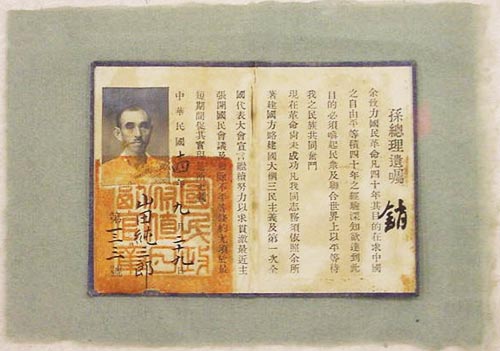 孫總理遺囑
銷
余致力國民革命凡四十年其目的在求中國
之自由平等積四十年之經驗深知欲達到此
目的必須喚起民眾及聯合世界上以平等待
我之民族共同奮鬥
現在革命尚未成功凡我同志務須依照余所
著建國方略建國大綱三民主義及第一次全
國代表大會宣言繼續努力以求貫澈最近主
張開國民會議及廢除不平等條約尤須於最
短期間促其實現是所至囑
中華民國十四 九 二九
山田純三郎
第